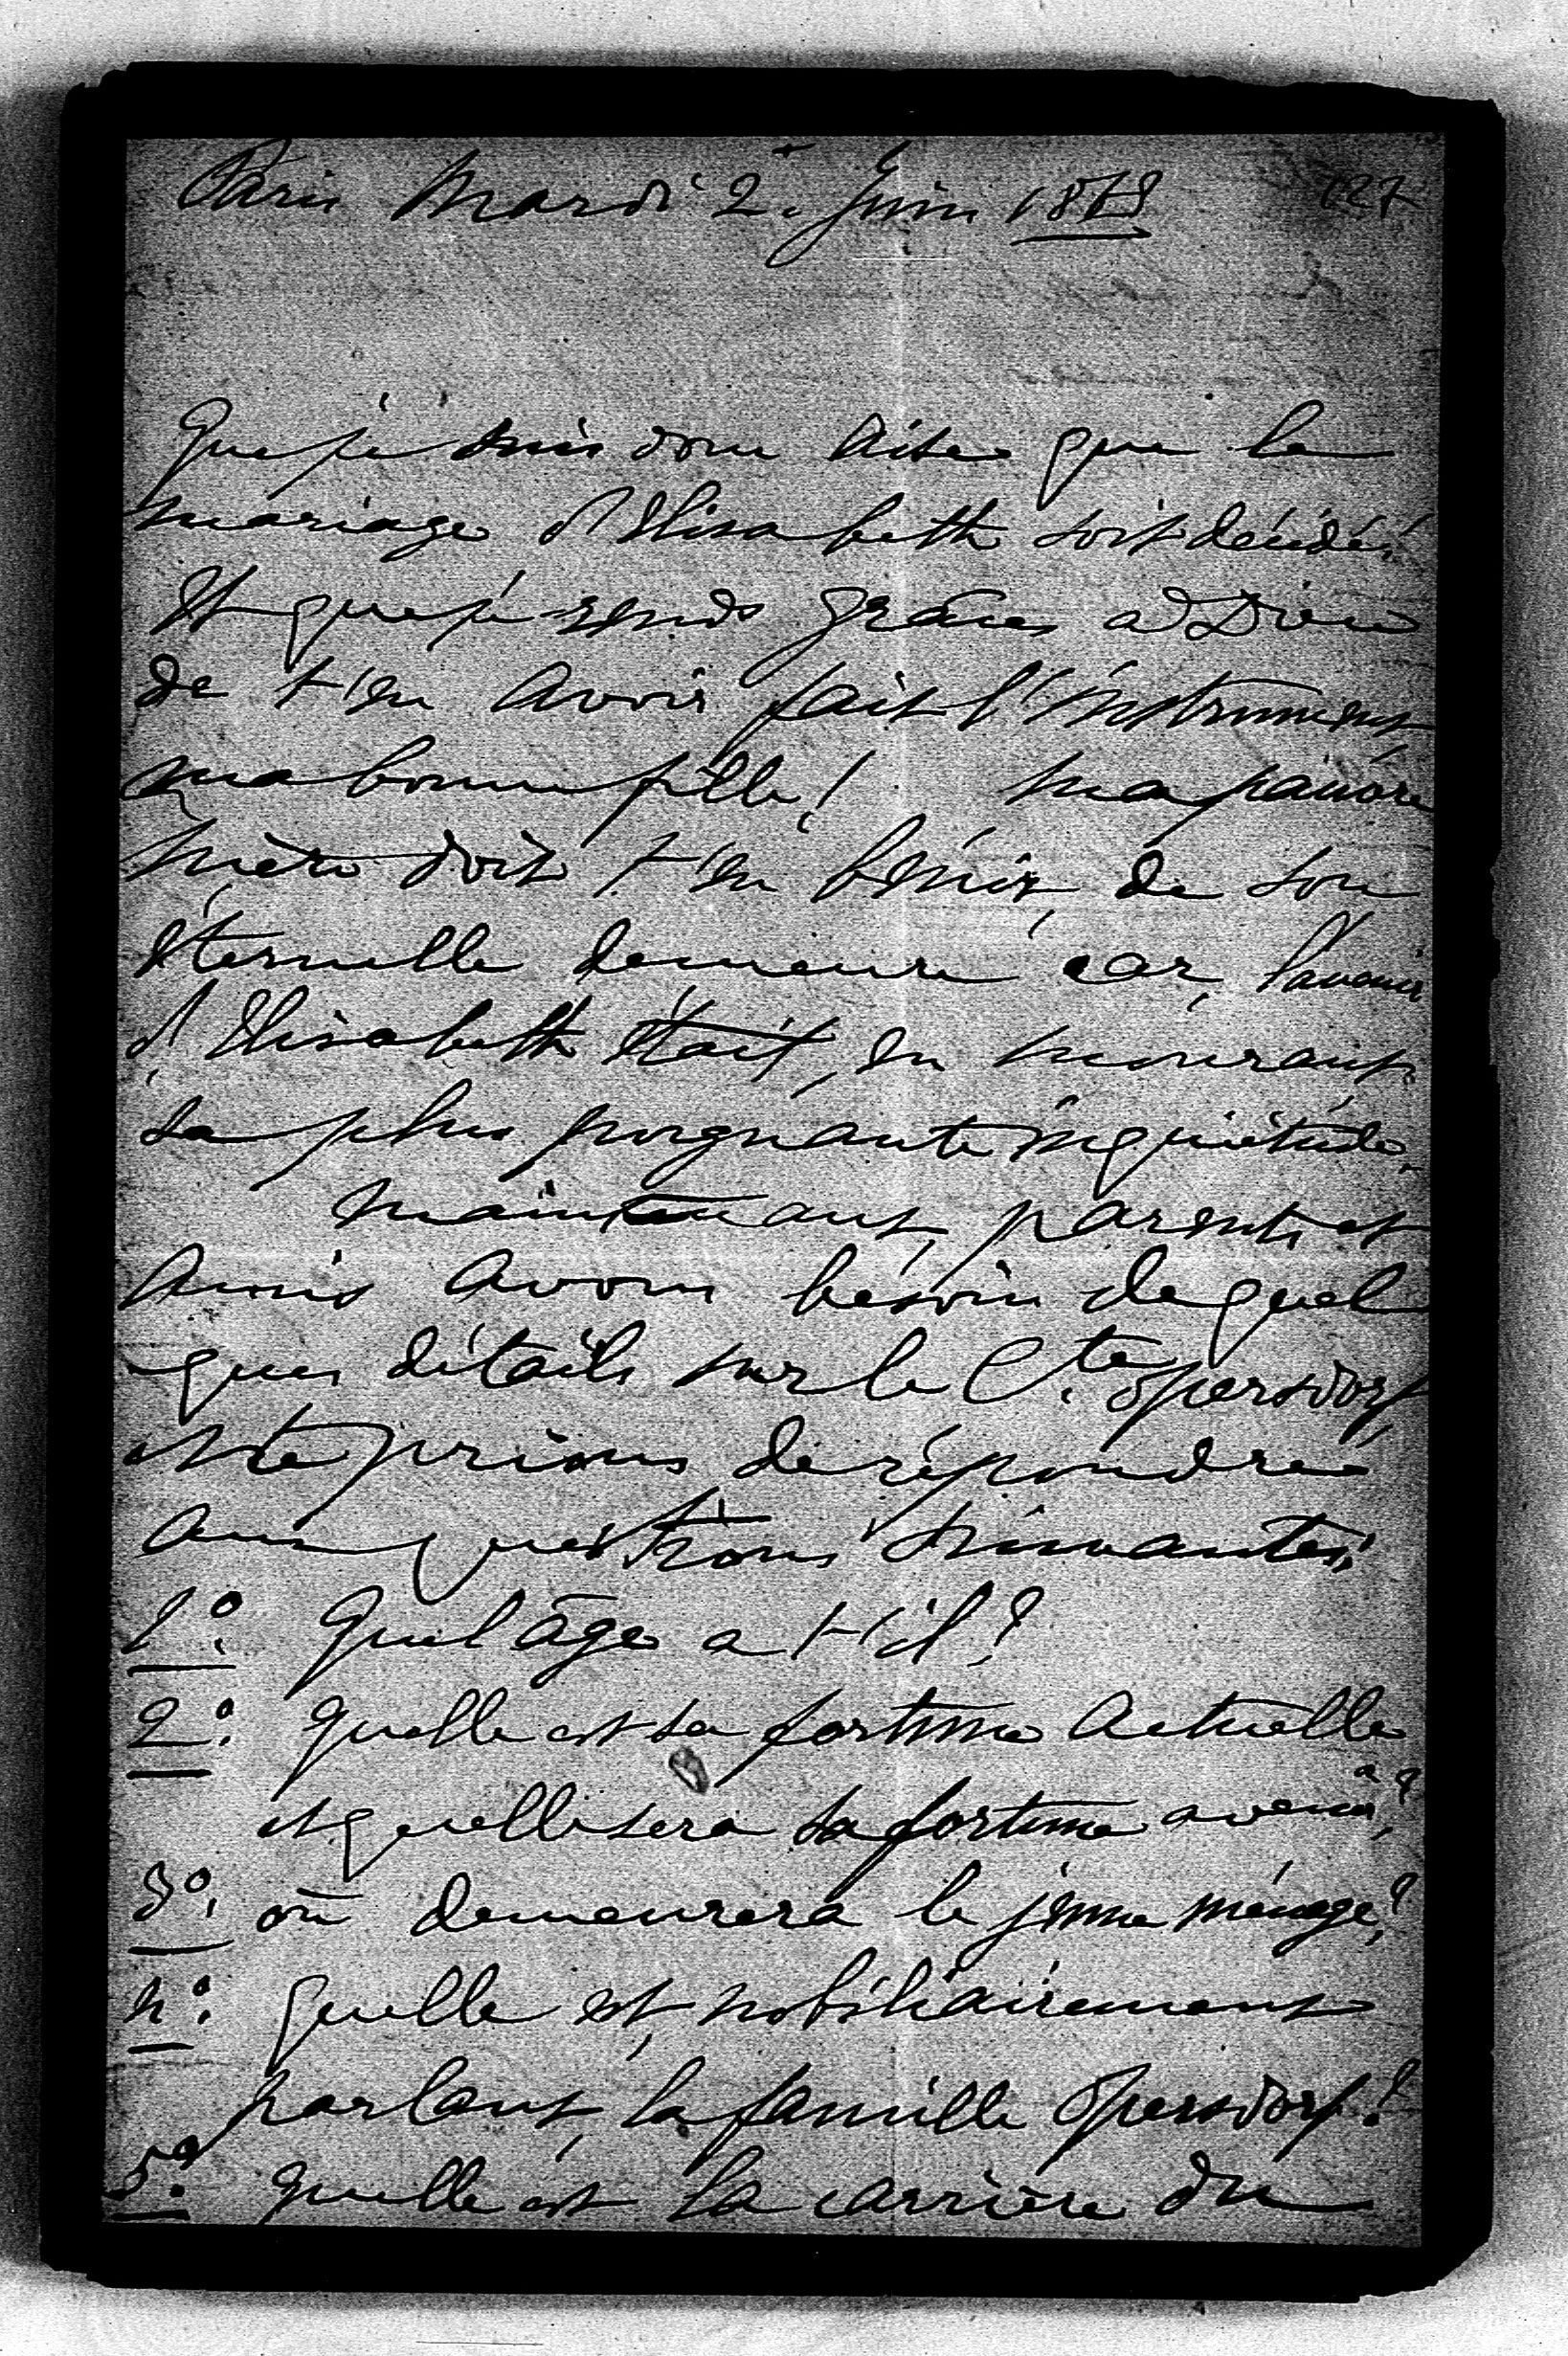 Paris Mardi 2. Juin 127
Que je suis donc aise que le
mariage d'Elisabeth soit décidé!
Et que je rends grâces à Dieu
de t'en avoir fait l'instrument
ma bonne fille! Ma pauvre
mère doit t'en bénir de son
éternelle demeure car, l'avenir
d'Elisabeth était, en mourant,
sa plus poignante inquiétude.
Maintenant, parents et
amis avons besoin de quel
-ques détails sur le Cte. Opersdorf
et te prions de répondre
aux questions suivantes:
1º. Quel âge a t'il?
2º. Quelle est sa fortune actuelle
et quelle sera sa fortune avenir?
3º. où demeurera le jeune ménage?
4º. Quelle est, nobiliairement
parlant, la famille Opersdorf?
5º. Quelle est la carrière du